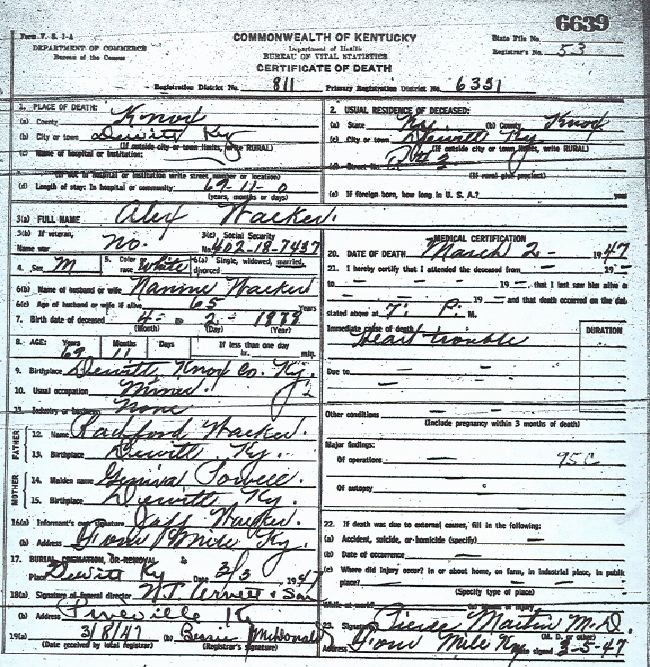 6639
Form V. S. 1-A
DEPARTMENT OF COMMERCE
Bureau of the Census
COMMONWEALTH OF KENTUCKY
Department of Health
BUREAU OF VITAL STATISTICS
CERTIFICATE OF DEATH
State File No.
Registrar's No. 53
Registration District No. 811 Primary Registration District No. 6351
1. PLACE OF DEATH:
(a) County Knox
(b) City or town Dewitt Ky
(If outside city or town limits, write RURAL)
(c) Name of hospital or institution:
(If not in hospital or institution write street number or location)
(d) Length of stay: In hospital or community 69-11-0
(years, months or days)
2. USUAL RESIDENCE OF DECEASED:
(a) State Ky (b) County Knox
(c) City or town Dewitt Ky
(If outside city or town limits, write RURAL)
(d) Street No.
(If rural give precinct)
(e) If foreign born, how long in U. S. A.? years
3(a) FULL NAME Alex Hacker
3(b) If veteran, Name war no. 3(c) Social Security No. 402-18-7437
4. Sex M 5. Color or race White 6(a) Single, widowed, married, divorced
6(b) Name of husband or wife Nannie Hacker
6(c) Age of husband or wife if alive 65 Years
7. Birth date of deceased 4 - 2 -
(Month) (Day) (Year)
8. AGE: Years 69 Months 11 Days If less than one day hr. min.
9. Birthplace Dewitt Knox Co. Ky.
10. Usual occupation Miner.
11. Industry or business None
FATHER
12. Name Radford Hacker.
13. Birthplace Dewitt Ky.
MOTHER
14. Maiden name
15. Birthplace Dewitt Ky.
16(a) Informant's own signature Hacker.
(b) Address Mile Ky.
17. BURIAL, CREMATION, OR REMOVAL
Place Dewitt Ky Date 3/3 1947
18(a) Signature of funeral director & Son
(b) Address Pineville Ky
19(a) 3/8/47 (b) Bessie McDonald
(Date received by local registrar) (Registrar's signature)
MEDICAL CERTIFICATION
20. DATE OF DEATH March 2- 1947
21. I hereby certify that I attended the deceased from 19
to 19 that I last saw him alive o
19 and that death occurred on the dat
stated above at P. M.
Immediate cause of death DURATION
Heart trouble
Due to
Other conditions
(Include pregnancy within 3 months of death)
Major findings:
Of operations 95C
Of autopsy
22. If death was due to external causes, fill in the following:
(a) Accident, suicide, or homicide (specify)
(b) Date of occurrence
(c) Where did injury occur? in or about home, on farm, in industrial place, in public
place?
(Specify type of place)
While at work?
23. Signature Pierce Martin M.D.
(M. D. or other)
Address Mile Ky Date signed 3-5-47